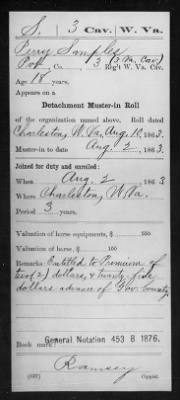 S. | 3 Cav. | W. Va.
Perry Samples
Pvt, Co. 3 (3 Va. Cav.) Reg't W. Va. Cav.
Age 18 years.
Appears on a
Detachment Muster-in Roll
of the organization named above. Roll dated
Charleston, W. Va., Aug. 10, 1863.
Muster-in to date Aug. 2, 1863.
Joined for duty and enrolled:
When Aug. 2, 1863
Where Charleston, W. Va.
Period 3 years.
Valuation of horse equipments, $ 100
Valuation of horse, $ 100
Remarks: Entitled to Premium of
two (2) dollars, & twenty five
dollars advance of Gov. bounty.
General Notation 453 B 1876.
Book mark:
Ramsey
Copyist.